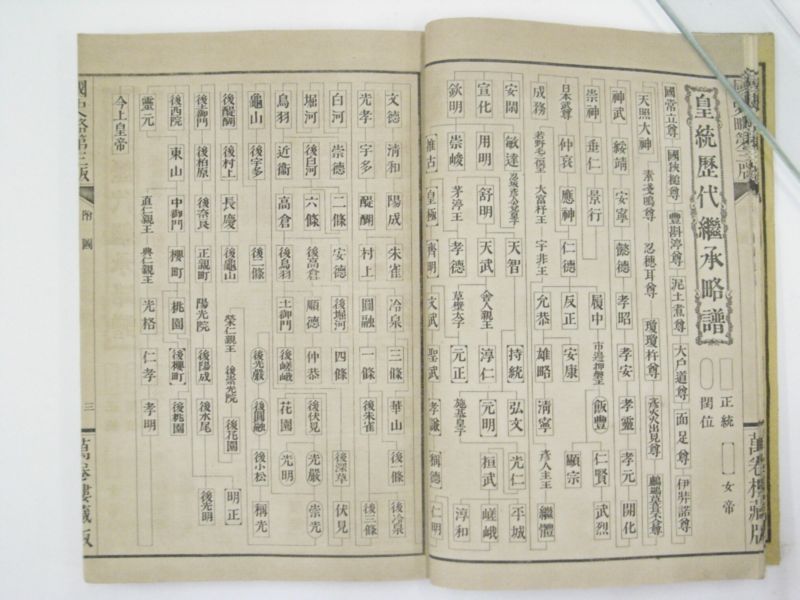 皇統歷代繼承略譜
正統
閏位
女帝
國常立尊 國狹槌尊 豐斟渟尊 泥土煮尊 大戶道尊 面足尊 伊弉諾尊
天照大神 素戔嗚尊 忍穗耳尊 瓊瓊杵尊 彥火火出見尊
神武 綏靖 安寧 懿德 孝昭 孝安 孝靈 孝元 開化
崇神 垂仁 景行 履中 市邊押磐王 飯豐 仁賢 武烈
日本武尊 仲哀 應神 仁德 反正 安康 顯宗
成務 若野毛二俣王 大富杵王 宇非王 允恭 雄略 清寧 彥人主王 繼體
安閑 敏達 天智 持統 弘文 光仁 平城
宣化 用明 舒明 天武 舍人親王 淳仁 元明 桓武 嵯峨
欽明 崇峻 茅渟王 孝德 草壁太子 元正 施基皇子 淳和
推古 皇極 齊明 文武 聖武 孝謙 稱德 仁明
萬卷樓藏版
文德 清和 陽成 朱雀 冷泉 三條 華山 後一條 後冷泉
光孝 宇多 醍醐 村上 圓融 一條 後朱雀 後三條
白河 崇德 二條 安德 後堀河 四條 後深草 伏見
堀河 後白河 六條 後高倉 順德 仲恭 後伏見 光嚴 崇光
鳥羽 近衞 高倉 後鳥羽 土御門 後嵯峨 花園 光明
龜山 後宇多 後二條 後光嚴 後圓融 後小松 稱光
後醍醐 後村上 長慶 後龜山 榮仁親王 後崇光院 後花園 明正
後土御門 後柏原 後奈良 正親町 陽光院 後陽成 後水尾 後光明
後西院 東山 中御門 櫻町 桃園 後櫻町 後桃園
靈元 直仁親王 典仁親王 光格 仁孝 孝明
今上皇帝
國史略第三版
附圖
三
萬卷樓藏版